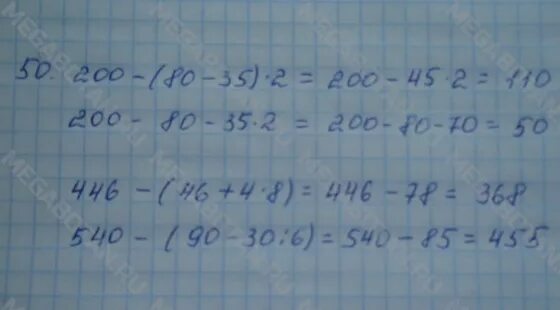 50. 200 - (80 - 35) · 2 = 200 - 45 · 2 = 110
200 - 80 - 35 · 2 = 200 - 80 - 70 = 50
446 - (46 + 4 · 8) = 446 - 78 = 368
540 - (90 - 30 : 6) = 540 - 85 = 455